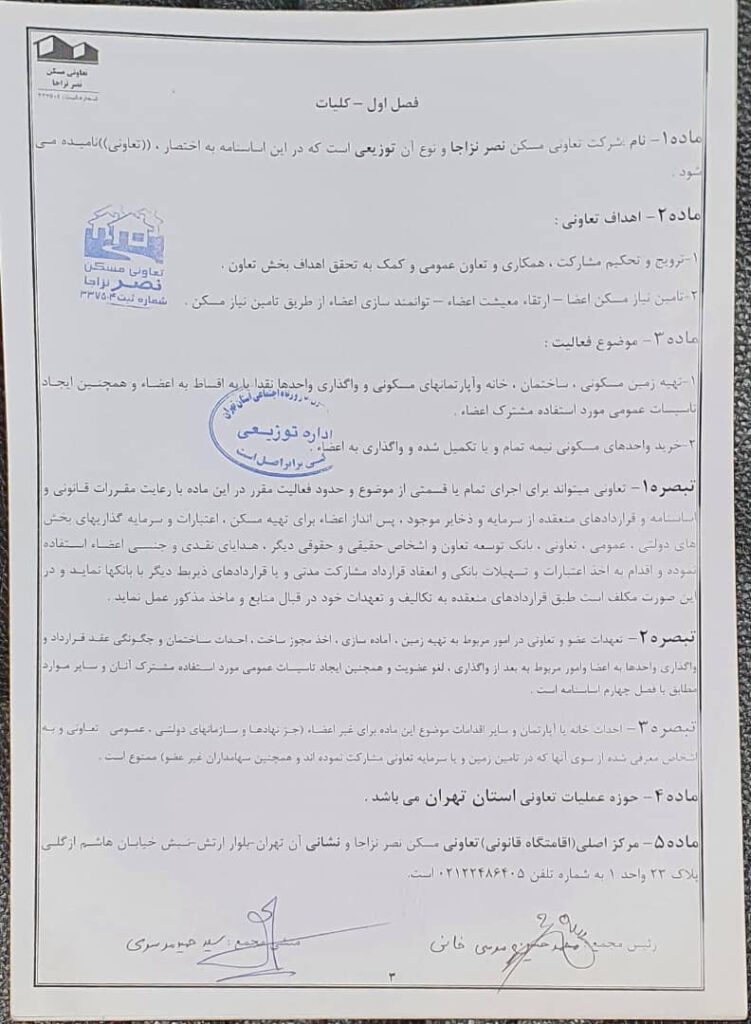 تعاونی مسکن
نصر نزاجا
شماره ثبت: ۳۳۷۵۰۴
فصل اول – کلیات
ماده۱- نام شرکت تعاونی مسکن نصر نزاجا و نوع آن توزیعی است که در این اساسنامه به اختصار ، ((تعاونی))نامیده می
شود .
ماده۲- اهداف تعاونی :
۱-ترویج و تحکیم مشارکت ، همکاری و تعاون عمومی و کمک به تحقق اهداف بخش تعاون .
۲-تامین نیاز مسکن اعضا – ارتقاء معیشت اعضاء – توانمند سازی اعضاء از طریق تامین نیاز مسکن .
تعاونی مسکن
نصر نزاجا
شماره ثبت ۳۳۷۵۰۴
ماده۳- موضوع فعالیت :
۱-تهیه زمین مسکونی ، ساختمان ، خانه وآپارتمانهای مسکونی و واگذاری واحدها نقدا یا به اقساط به اعضاء و همچنین ایجاد
تاسیسات عمومی مورد استفاده مشترک اعضاء .
۲-خرید واحدهای مسکونی نیمه تمام و یا تکمیل شده و واگذاری به اعضاء .
رفاه اجتماعی استان تهران
اداره توزیعی
کپی برابر اصل است
تبصره۱- تعاونی میتواند برای اجرای تمام یا قسمتی از موضوع و حدود فعالیت مقرر در این ماده با رعایت مقررات قانونی و
اساسنامه و قراردادهای منعقده از سرمایه و ذخایر موجود ، پس انداز اعضاء برای تهیه مسکن ، اعتبارات و سرمایه گذاریهای بخش
های دولتی ، عمومی ، تعاونی ، بانک توسعه تعاون و اشخاص حقیقی و حقوقی دیگر ، هدایای نقدی و جنسی اعضاء استفاده
نموده و اقدام به اخذ اعتبارات و تسهیلات بانکی و انعقاد قرارداد مشارکت مدنی و یا قراردادهای ذیربط دیگر با بانکها نماید و در
این صورت مکلف است طبق قراردادهای منعقده به تکالیف و تعهدات خود در قبال منابع و ماخذ مذکور عمل نماید .
تبصره۲- تعهدات عضو و تعاونی در امور مربوط به تهیه زمین ، آماده سازی ، اخذ مجوز ساخت ، احداث ساختمان و چگونگی عقد قرارداد و
واگذاری واحدها به اعضا وامور مربوط به بعد از واگذاری ، لغو عضویت و همچنین ایجاد تاسیسات عمومی مورد استفاده مشترک آنان و سایر موارد
مطابق با فصل چهارم اساسنامه است .
تبصره۳- احداث خانه یا آپارتمان و سایر اقدامات موضوع این ماده برای غیر اعضاء (جز نهادها و سازمانهای دولتی ، عمومی تعاونی و به
اشخاص معرفی شده از سوی آنها که در تامین زمین و یا سرمایه تعاونی مشارکت نموده اند و همچنین سهامداران غیر عضو) ممنوع است .
ماده۴- حوزه عملیات تعاونی استان تهران می باشد .
ماده۵- مرکز اصلی(اقامتگاه قانونی)تعاونی مسکن نصر نزاجا و نشانی آن تهران-بلوار ارتش-نبش خیابان هاشم ازگلی
پلاک ۲۳ واحد ۱ به شماره تلفن ۰۲۱۲۲۴۸۶۴۰۵ است.
رئیس مجمع : محمد حسین موسی خانی
منشی مجمع : سید حیدر
۳